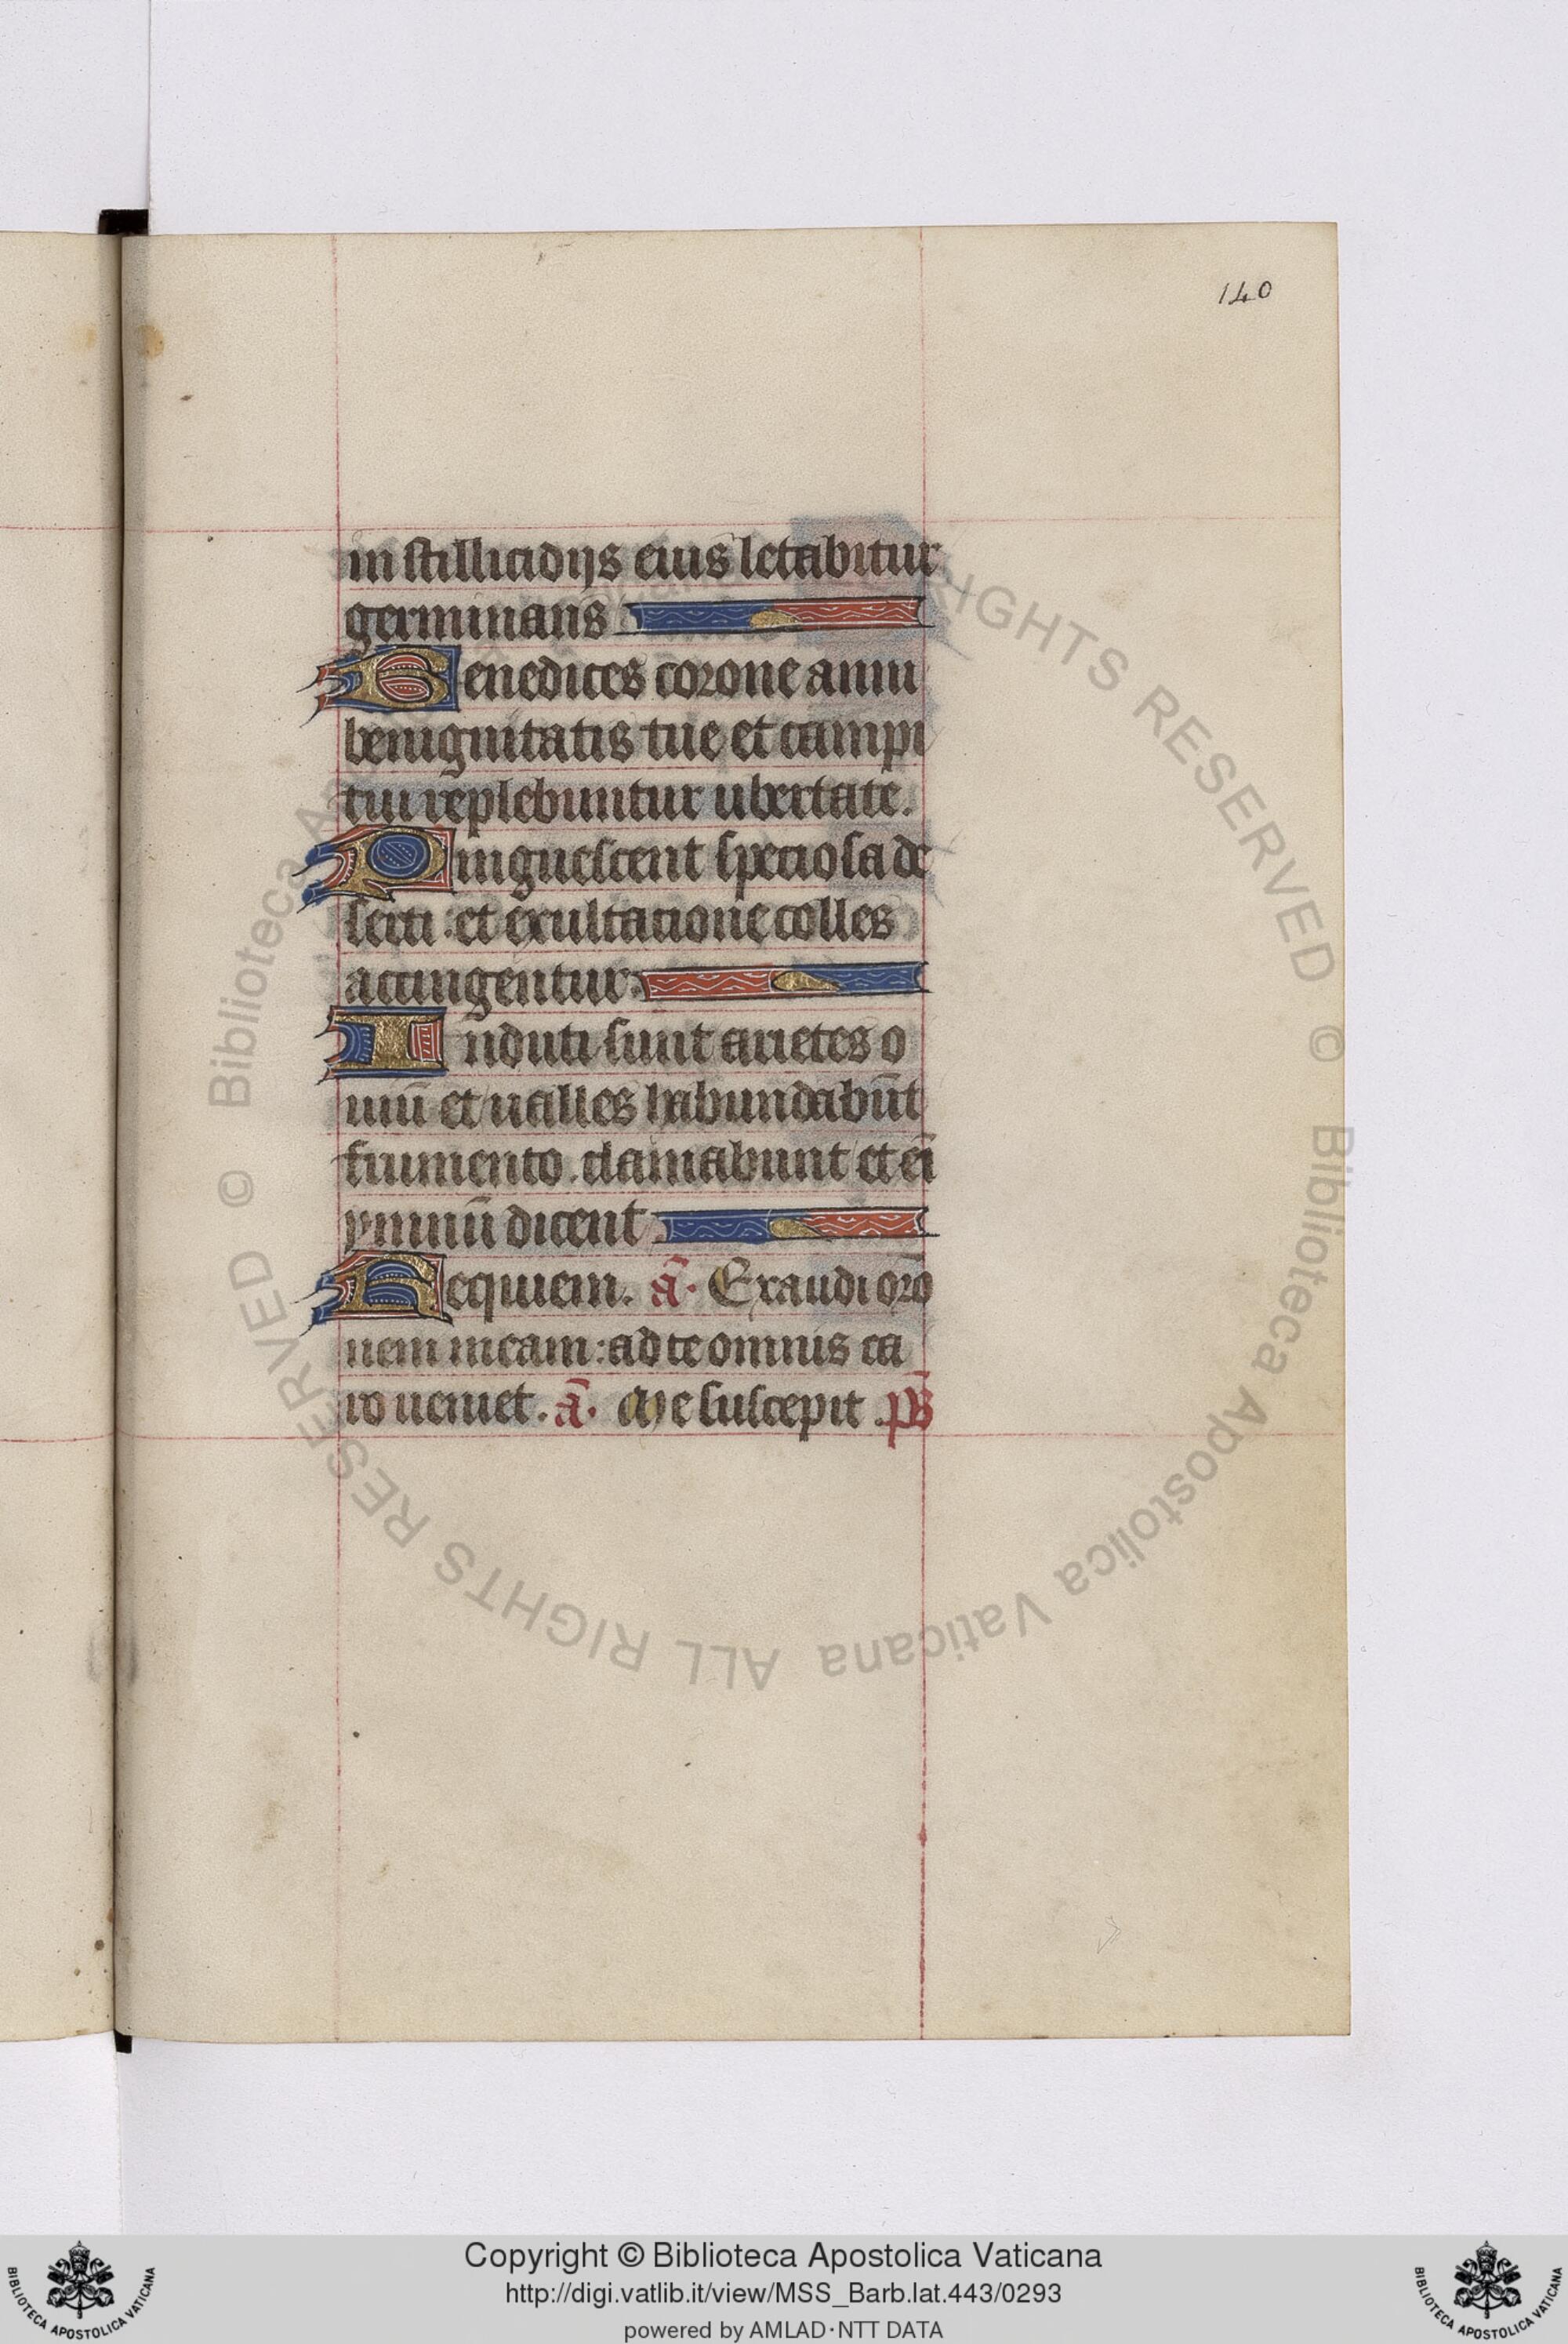 140
in stillicidijs eius letabitur
germinans
Benedices corone anni
benignitatis tue et campi
tui replebuntur ubertate.
Pinguescent speciosa de
serti : et exultatione colles
accingentur.
Induti sunt arietes o
uiũ et ualles habundabũt
frumento . clamabunt et eī
ymnũ dicent
Requiem. ā. Exaudi oro
nem meam : ad te omnis ca
ro ueniet. ā. Me suscepit ps
© Biblioteca Apostolica Vaticana ALL RIGHTS RESERVED © Biblioteca Apostolica Vaticana ALL RIGHTS RESERVED
Copyright © Biblioteca Apostolica Vaticana
http://digi.vatlib.it/view/MSS_Barb.lat.443/0293
powered by AMLAD·NTT DATA
BIBLIOTECA APOSTOLICA VATICANA
BIBLIOTECA APOSTOLICA VATICANA